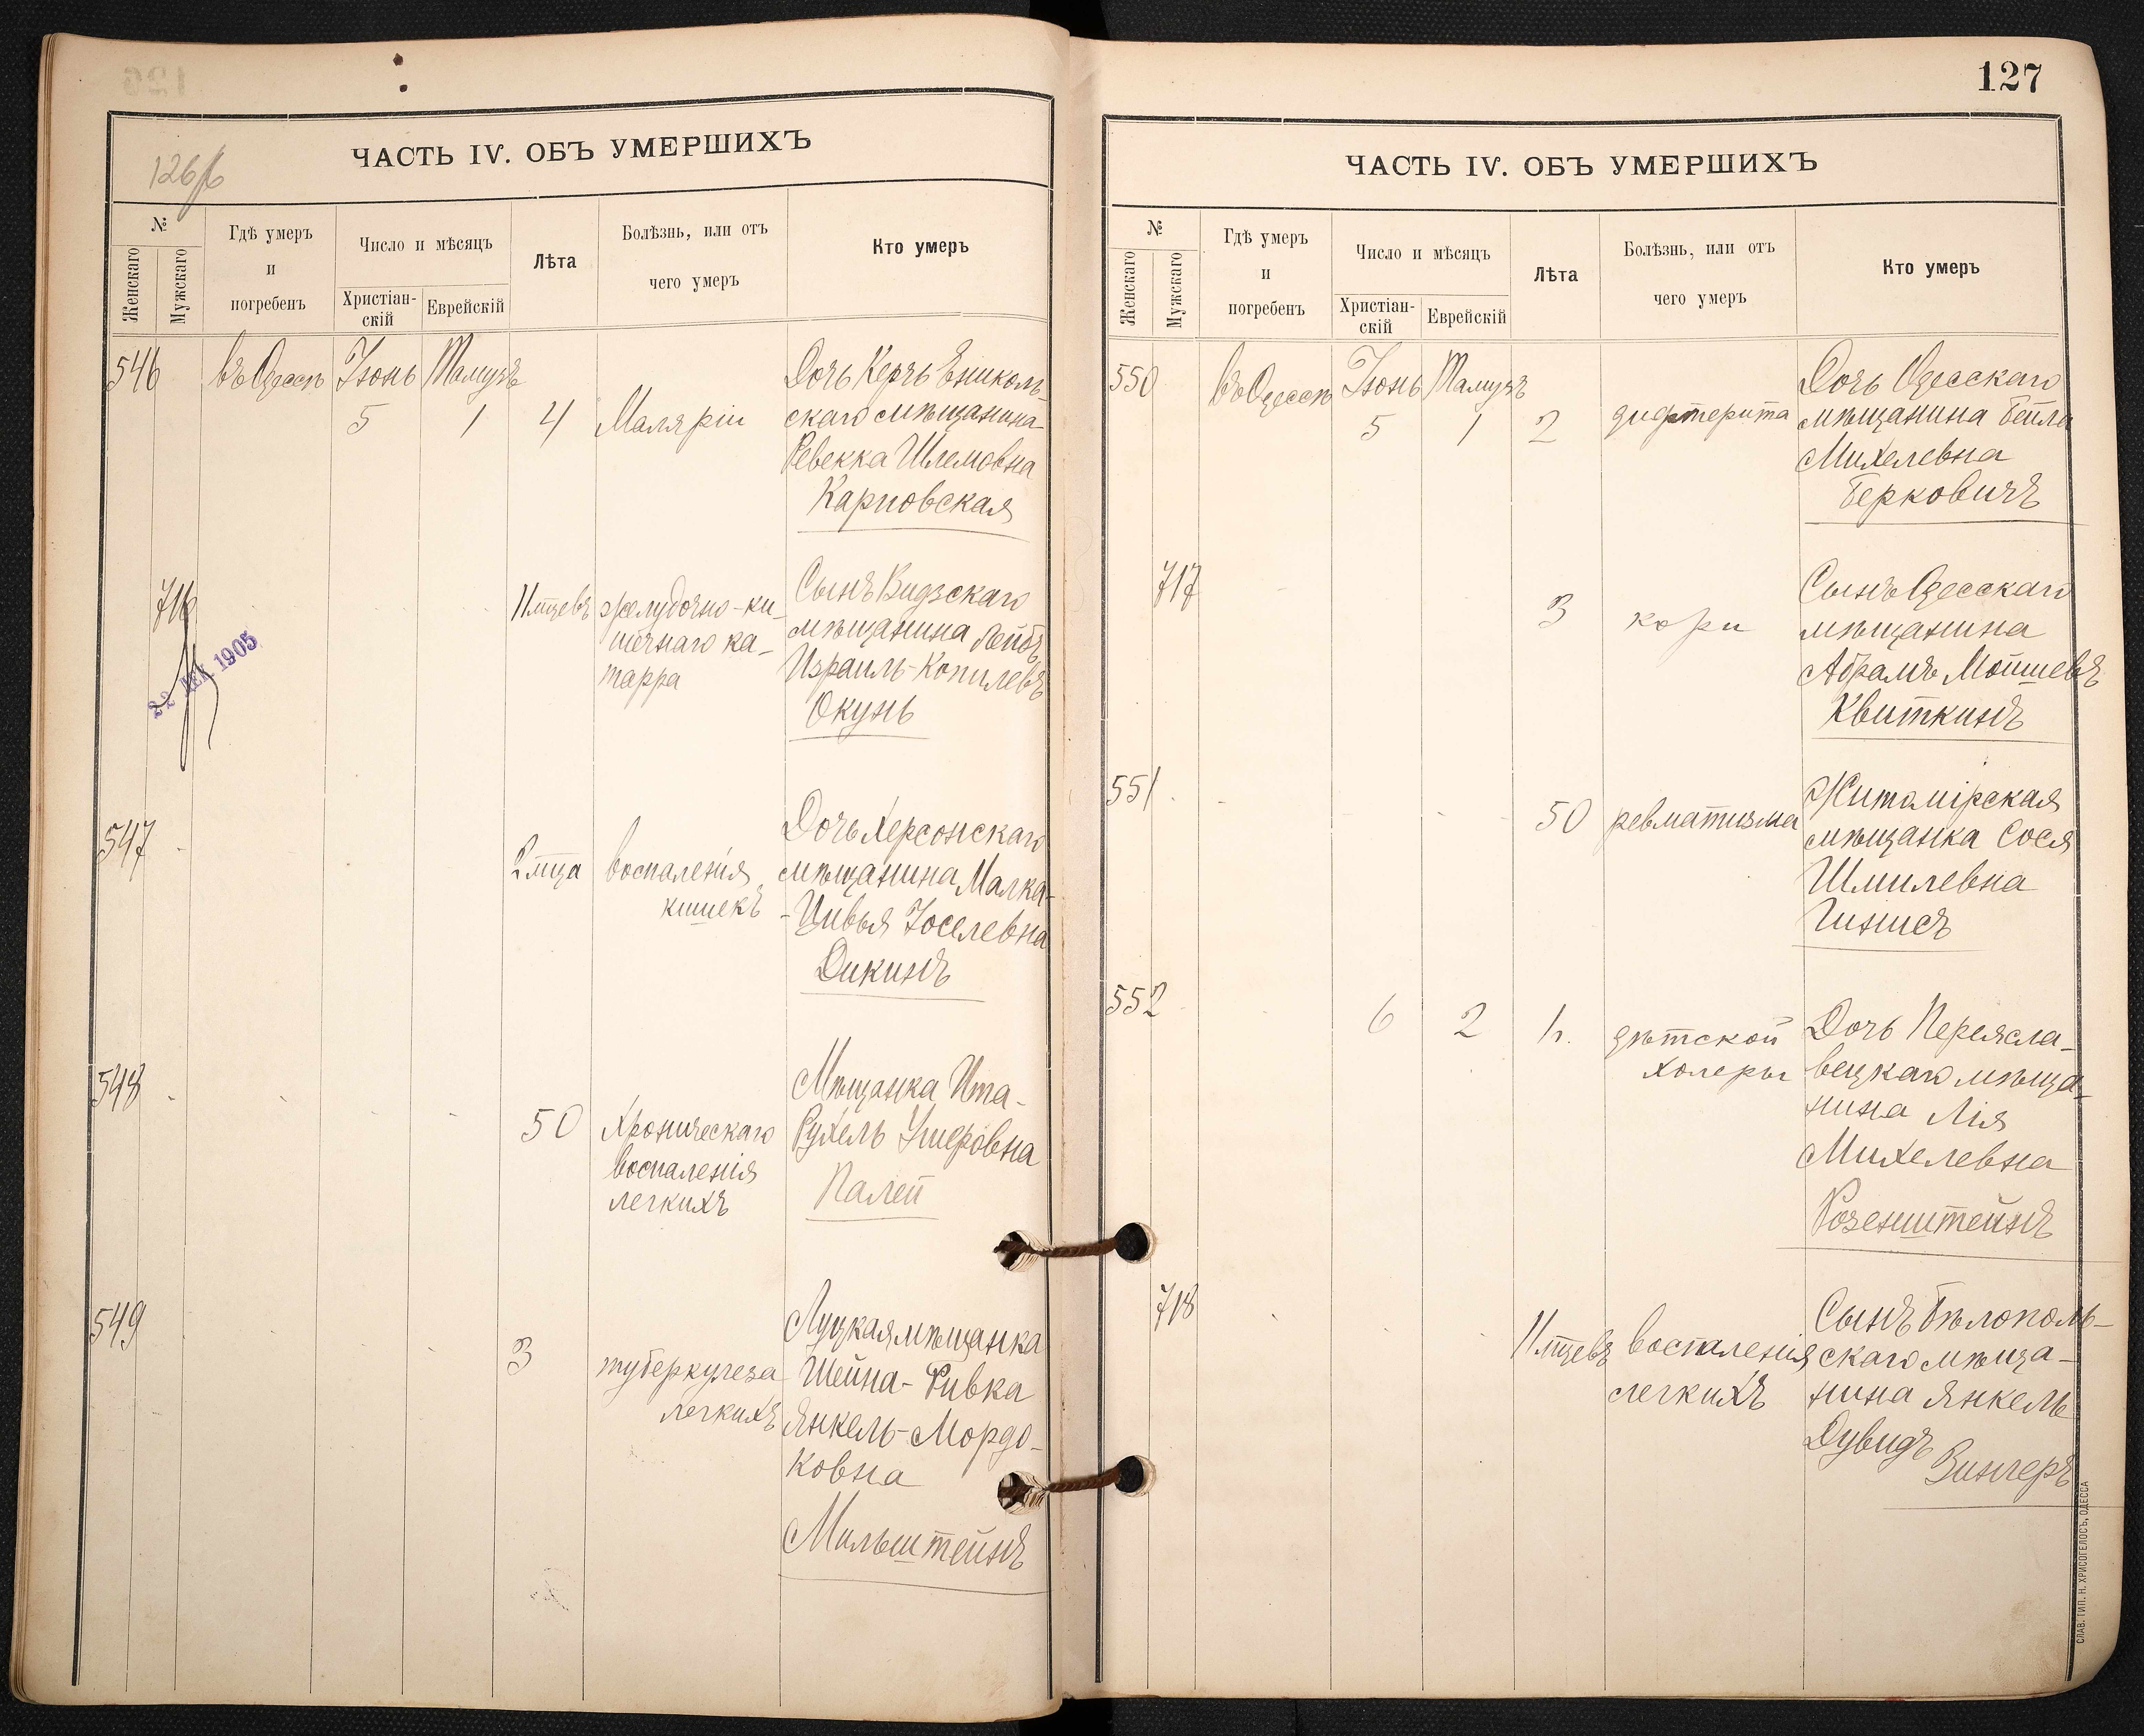 126
126 б
ЧАСТЬ IV. ОБЪ УМЕРШИХЪ
№
Женскаго
Мужскаго
Гдѣ умеръ
и
погребенъ
Число и мѣсяцъ
Христіан-
скій
Еврейскій
Лѣта
Болѣзнь, или отъ
чего умеръ
Кто умеръ
546
въ Одессѣ
Іюнь
5
Тамузъ
1
4
Маляріи
Дочь Керчь Ениколь-
скаго мѣщанина
Ревекка Шлемовна
Карповская
716
22 ДЕК 1905
11 мцевъ
желудочно-ки-
шечнаго ка-
тарра
Сынъ Видзскаго
мѣщанина Лейбъ
Израиль-Копилевъ
Окунь
547
2 мца
воспаленія
кишекъ
Дочь Херсонскаго
мѣщанина Малка-
-Цивья Іоселевна
Дикинъ
548
50
Хроническаго
воспаленія
легкихъ
Мѣщанка Ита-
Рухель Ушеровна
Палей
549
3
туберкулеза
легкихъ
Луцкая мѣщанка
Шейна-Ривка
Янкель-Мордо-
ковна
Мильштейнъ
127
ЧАСТЬ IV. ОБЪ УМЕРШИХЪ
№
Женскаго
Мужскаго
Гдѣ умеръ
и
погребенъ
Число и мѣсяцъ
Христіан-
скій
Еврейскій
Лѣта
Болѣзнь, или отъ
чего умеръ
Кто умеръ
550
въ Одессѣ
Іюнь
5
Тамузъ
1
2
дифтерита
Дочь Одесскаго
мѣщанина Бейла
Михелевна
Берковичъ
717
3
кори
Сынъ Одесскаго
мѣщанина
Абрамъ Мошиевъ
Квиткинъ
551
50
ревматизма
Житомірская
мѣщанка Сося
Шмилевна
Гинисъ
552
6
2
дѣтской
холеры
Дочь Переясла-
вецкаго мѣща-
нина Лія
Михелевна
Розенштейнъ
718
11 мцевъ
воспаленія
легкихъ
Сынъ Бѣлополь-
скаго мѣща-
нина Янкель
Дувидъ
Зингеръ
СЛАВ. ТИП. Н. ХРИСОГЕЛОСЪ, ОДЕССА